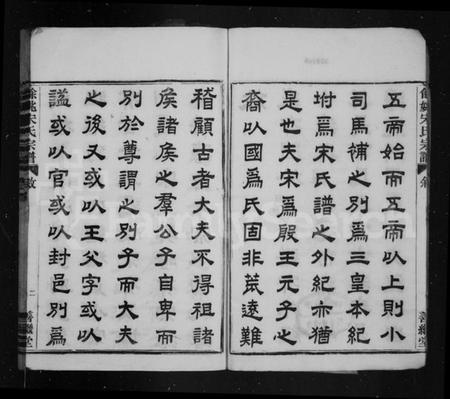 五帝始而五帝以上則小
司馬補之別爲三皇本紀
坿爲宋氏譜之外紀亦猶
是也夫宋爲殷王元子之
裔以國爲氏固非茫遠難
餘姚宋氏宗譜
善繼堂
稽顧古者大夫不得祖諸
矦諸矦之羣公子自卑而
別於尊謂之別子而大夫
之後又或以王父字或以
謚或以官或以封邑別爲
餘姚宋氏宗譜
二
善繼堂